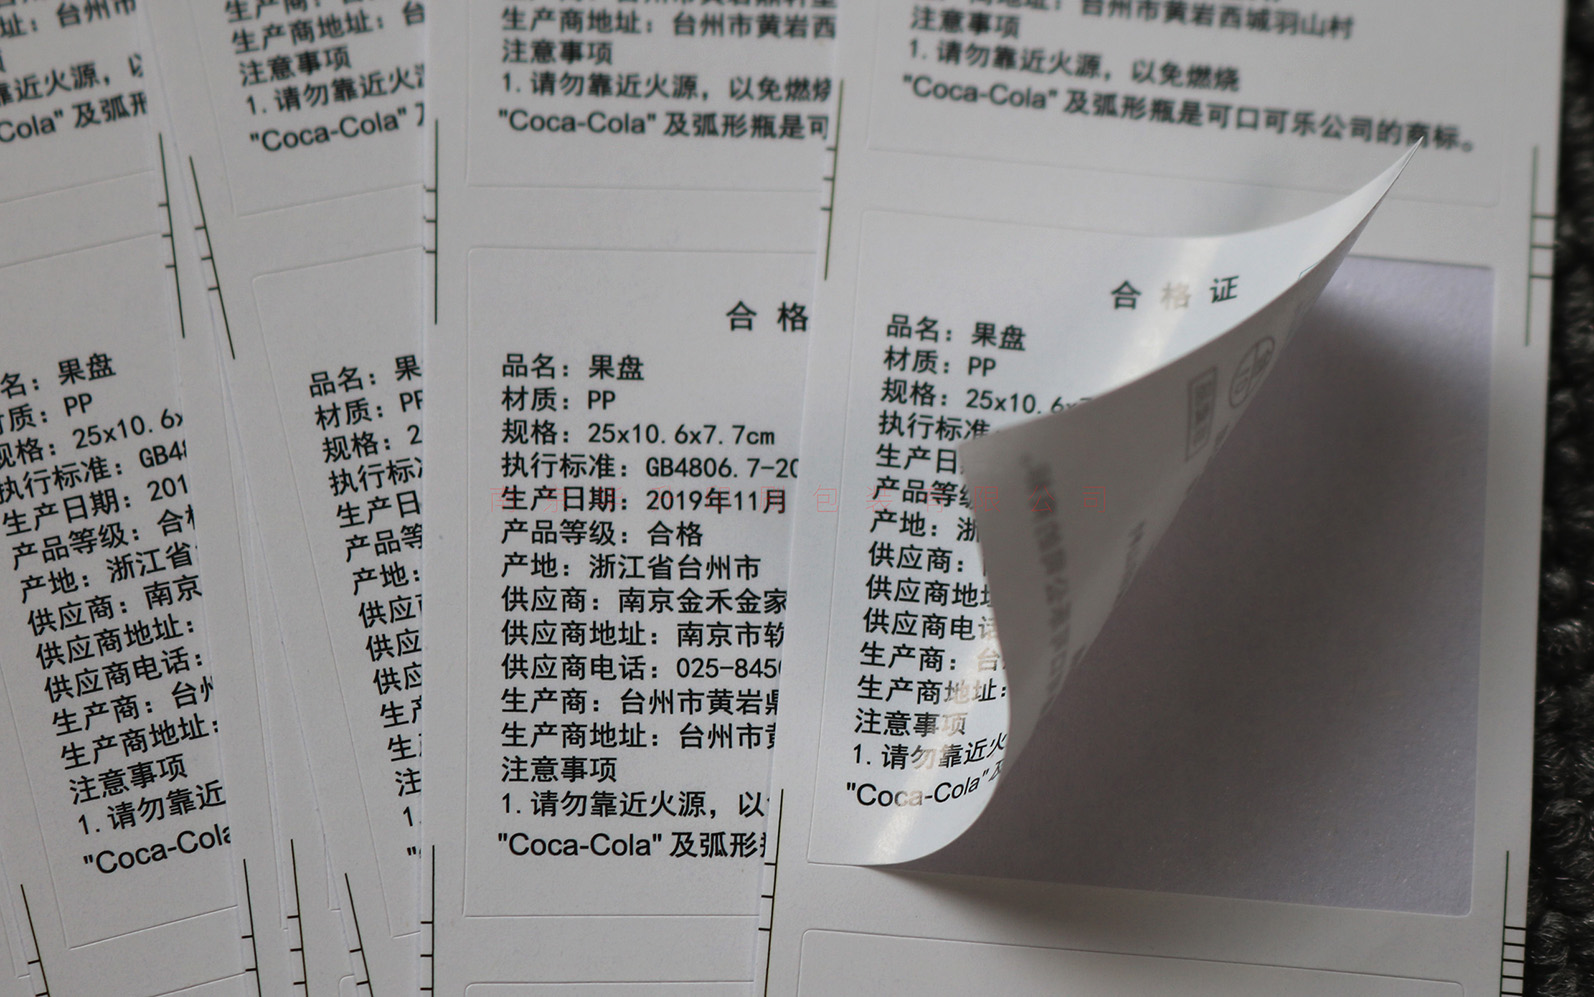 址：台州市
靠近火源，以
Cola" 及弧形
名：果盘
材质：PP
规格：25x10.6x
执行标准：GB48
生产日期：201
产品等级：合格
产地：浙江省
供应商：南京
供应商地址：
供应商电话：
生产商：台州
生产商地址：
注意事项
1.请勿靠近
"Coca-Cola
生产商地址：台
注意事项
1.请勿靠近火源
"Coca-Cola" 及
品名：果
材质：PP
规格：2
执行标
生产日
产品等
产地：
供应
供应
供应
生产
生
注
1.
生产商地址：台州市黄岩西
注意事项
1.请勿靠近火源，以免燃烧
"Coca-Cola" 及弧形瓶是可
合格
品名：果盘
材质：PP
规格：25x10.6x7.7cm
执行标准：GB4806.7-20
生产日期：2019年11月
产品等级：合格
产地：浙江省台州市
供应商：南京金禾金家
供应商地址：南京市软
供应商电话：025-8450
生产商：台州市黄岩鼎
生产商地址：台州市黄
注意事项
1.请勿靠近火源，以
"Coca-Cola" 及弧形
地址：台州市黄岩西城羽山村
注意事项
1.请勿靠近火源，以免燃烧
"Coca-Cola" 及弧形瓶是可口可乐公司的商标。
合格证
品名：果盘
材质：PP
规格：25x10.6x7
执行标准
生产日
产品等级
产地：浙
供应商：
供应商地址
供应商电话
生产商：台
生产商地址：
注意事项
1.请勿靠近火
"Coca-Cola" 及